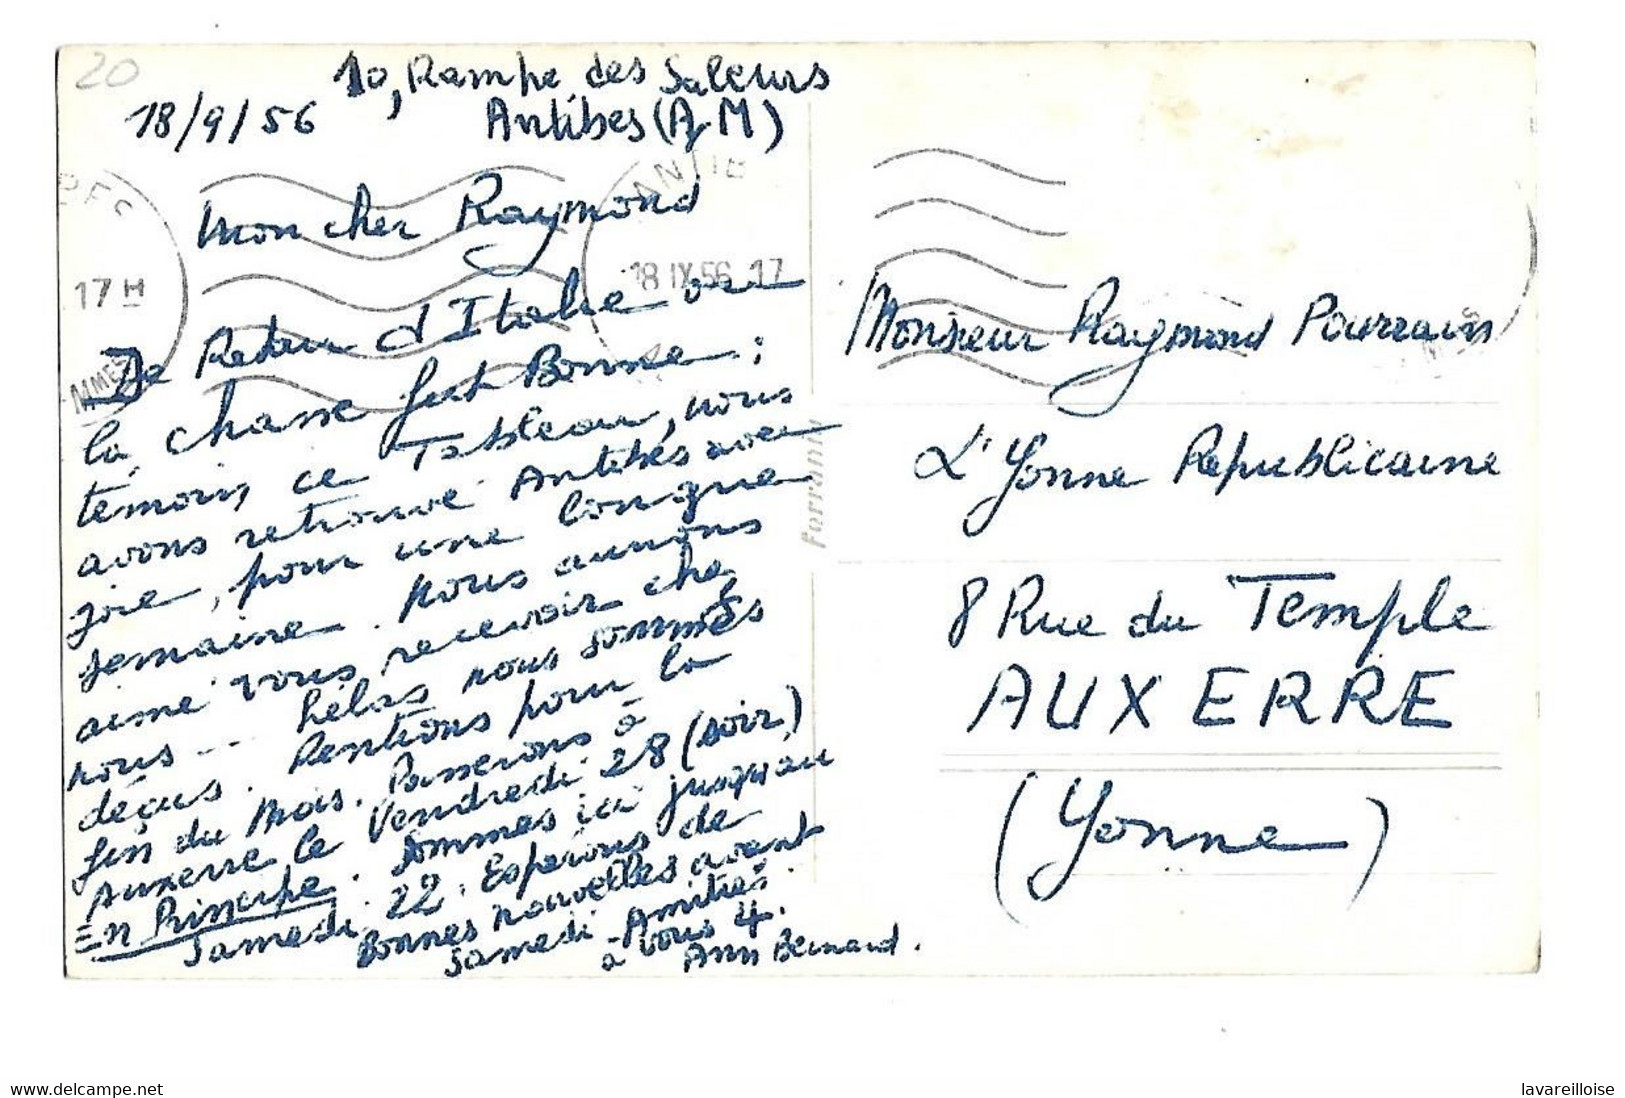 20
10, Rampe des Saleurs
18/9/56 Antibes (A.M)
BES
17 H
ANTIB
18 IX 56 17
Mon cher Raymond
De Retour d'Italie où
la chasse fut Bonne:
témoin, ce Tableau, nous
avons retrouvé Antibes avec
joie, pour une longue
semaine. Nous aurions
aimé vous recevoir chez
nous --- hélas nous sommes
déçus. Rentrons pour la
fin du mois. Passerons à
Auxerre le Vendredi 28 (soir)
En Principe. Sommes ici jusqu'au
Samedi 22. Espérons de
Bonnes nouvelles avant
Samedi - Amitiés
à vous 4.
Ann Bernard.
Ferrania
Monsieur Raymond Pourrain
L'Yonne Republicaine
8 Rue du Temple
AUXERRE
(Yonne)
www.delcampe.net
lavareilloise